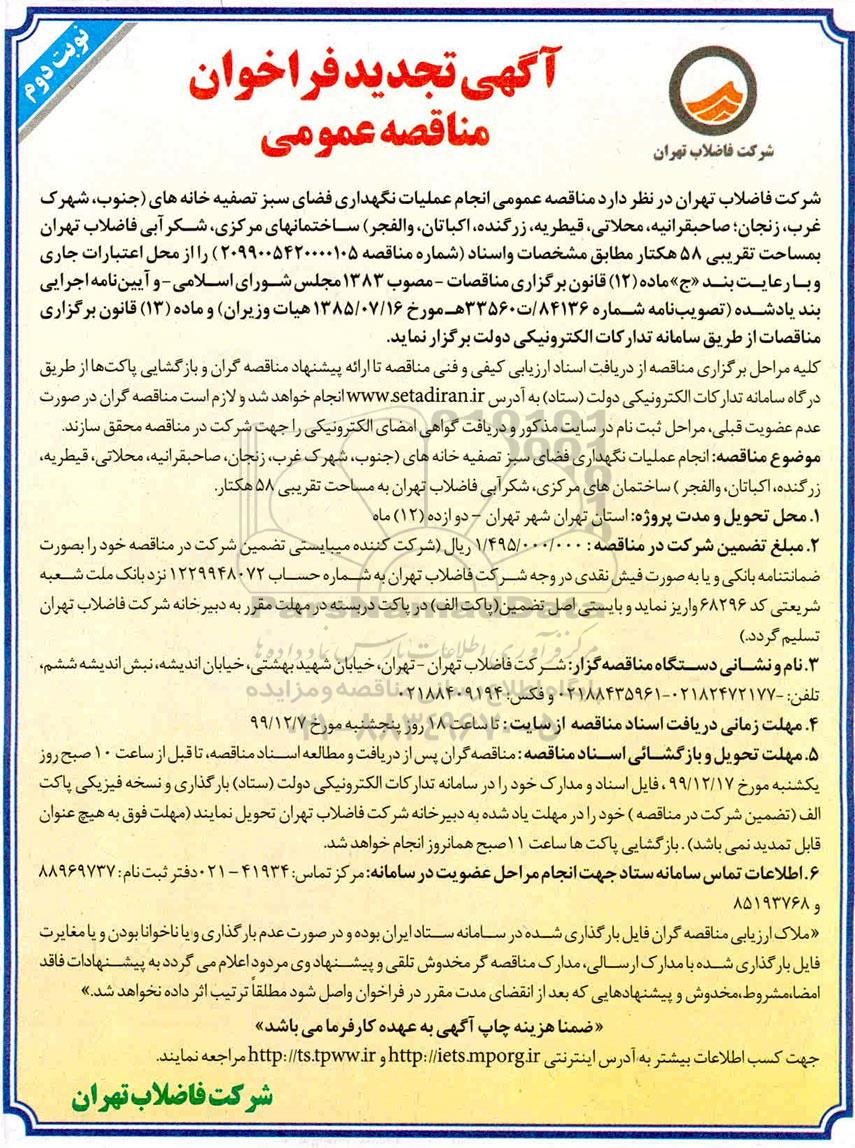 نوبت دوم
آگهی تجدید فراخوان
مناقصه عمومی
شرکت فاضلاب تهران
شرکت فاضلاب تهران در نظر دارد مناقصه عمومی انجام عملیات نگهداری فضای سبز تصفیه خانه های (جنوب، شهرک
غرب، زنجان؛ صاحبقرانیه، محلاتی، قیطریه، زرگنده، اکباتان، والفجر) ساختمانهای مرکزی، شکر آبی فاضلاب تهران
بمساحت تقریبی ۵۸ هکتار مطابق مشخصات واسناد (شماره مناقصه ۲۰۹۹۰۰۵۴۲۰۰۰۰۱۰۵) را از محل اعتبارات جاری
و بـا رعایـت بنـد «ج» ماده (۱۲) قانون برگزاری مناقصات - مصوب ۱۳۸۳ مجلس شورای اسلامی - و آیین‌نامه اجرایی
بند یادشده (تصویب‌نامه شماره ۸۴۱۳۶/ت۳۳۵۶۰هـ مورخ ۱۳۸۵/۰۷/۱۶ هیات وزیران) و ماده (۱۳) قانون برگزاری
مناقصات از طریق سامانه تدارکات الکترونیکی دولت برگزار نماید.
کلیه مراحل برگزاری مناقصه از دریافت اسناد ارزیابی کیفی و فنی مناقصه تا ارائه پیشنهاد مناقصه گران و بازگشایی پاکت‌ها از طریق
درگاه سامانه تدارکات الکترونیکی دولت (ستاد) به آدرس www.setadiran.ir انجام خواهد شد و لازم است مناقصه گران در صورت
عدم عضویت قبلی، مراحل ثبت نام در سایت مذکور و دریافت گواهی امضای الکترونیکی را جهت شرکت در مناقصه محقق سازند.
موضوع مناقصه: انجام عملیات نگهداری فضای سبز تصفیه خانه های (جنوب، شهرک غرب، زنجان، صاحبقرانیه، محلاتی، قیطریه،
زرگنده، اکباتان، والفجر ) ساختمان های مرکزی، شکرآبی فاضلاب تهران به مساحت تقریبی ۵۸ هکتار.
۱. محل تحویل و مدت پروژه: استان تهران شهر تهران - دوازده (۱۲) ماه
۲. مبلغ تضمین شرکت در مناقصه : ۱/۴۹۵/۰۰۰/۰۰۰ ریال (شرکت کننده میبایستی تضمین شرکت در مناقصه خود را بصورت
ضمانتنامه بانکی و یا به صورت فیش نقدی در وجه شرکت فاضلاب تهران به شماره حساب ۱۲۲۹۹۴۸۰۷۲ نزد بانک ملت شعبه
شریعتی کد ۶۸۲۹۶ واریز نماید و بایستی اصل تضمین (پاکت الف) در پاکت دربسته در مهلت مقرر به دبیرخانه شرکت فاضلاب تهران
تسلیم گردد.)
۳. نام و نشانی دستگاه مناقصه‌گزار: شرکت فاضلاب تهران - تهران، خیابان شهید بهشتی، خیابان اندیشه، نبش اندیشه ششم،
تلفن: ۰۲۱۸۲۴۷۲۱۷۷-۰۲۱۸۸۴۳۵۹۶۱ و فکس: ۰۲۱۸۸۴۰۹۱۹۴
۴. مهلت زمانی دریافت اسناد مناقصه از سایت : تا ساعت ۱۸ روز پنجشنبه مورخ ۹۹/۱۲/۷
۵. مهلت تحویل و بازگشائی اسناد مناقصه : مناقصه‌گران پس از دریافت و مطالعه اسناد مناقصه، تا قبل از ساعت ۱۰ صبح روز
یکشنبه مورخ ۹۹/۱۲/۱۷ ، فایل اسناد و مدارک خود را در سامانه تدارکات الکترونیکی دولت (ستاد) بارگذاری و نسخه فیزیکی پاکت
الف (تضمین شرکت در مناقصه ) خود را در مهلت یاد شده به دبیرخانه شرکت فاضلاب تهران تحویل نمایند (مهلت فوق به هیچ عنوان
قابل تمدید نمی باشد) . بازگشایی پاکت ها ساعت ۱۱ صبح همانروز انجام خواهد شد.
۶. اطلاعات تماس سامانه ستاد جهت انجام مراحل عضویت در سامانه: مرکز تماس: ۴۱۹۳۴ - ۰۲۱ دفتر ثبت نام : ۸۸۹۶۹۷۳۷
و ۸۵۱۹۳۷۶۸
«ملاک ارزیابی مناقصه گران فایل بارگذاری شده در سامانه ستاد ایران بوده و در صورت عدم بارگذاری و یا ناخوانا بودن و یا مغایرت
فایل بارگذاری شده با مدارک ارسالی، مدارک مناقصه گر مخدوش تلقی و پیشنهاد وی مردود اعلام می گردد به پیشنهادات فاقد
امضا،مشروط،مخدوش و پیشنهادهایی که بعد از انقضای مدت مقرر در فراخوان واصل شود مطلقاً ترتیب اثر داده نخواهد شد.»
«ضمنا هزینه چاپ آگهی به عهده کارفرما می باشد»
جهت کسب اطلاعات بیشتر به آدرس اینترنتی http://iets.mporg.ir و http://ts.tpww.ir مراجعه نمایند.
شرکت فاضلاب تهران
ParsNamadData